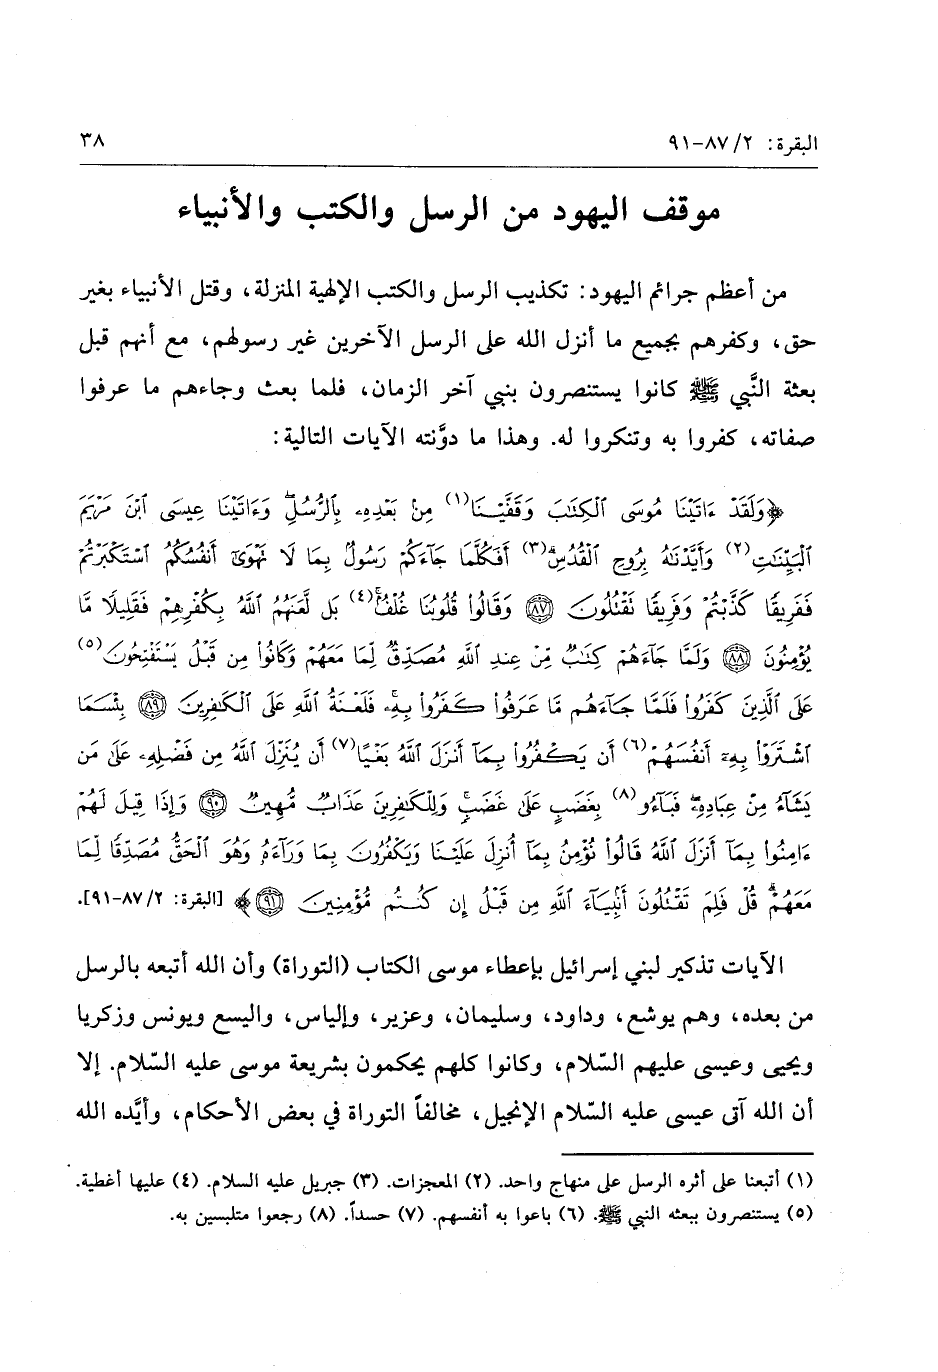 البقرة: ٢/ ٨٧-٩١
٣٨
موقف اليهود من الرسل والكتب والأنبياء
من أعظم جرائم اليهود: تكذيب الرسل والكتب الإلهية المنزلة، وقتل الأنبياء بغير
حق، وكفرهم بجميع ما أنزل الله على الرسل الآخرين غير رسولهم، مع أنهم قبل
بعثة النَّبي ﷺ كانوا يستنصرون بنبي آخر الزمان، فلما بعث وجاءهم ما عرفوا
صفاته، كفروا به وتنكروا له. وهذا ما دوَّنته الآيات التالية:
﴿وَلَقَدْ ءَاتَيْنَا مُوسَى ٱلْكِتَٰبَ وَقَفَّيْنَا(١) مِنۢ بَعْدِهِۦ بِٱلرُّسُلِۖ وَءَاتَيْنَا عِيسَى ٱبْنَ مَرْيَمَ
ٱلْبَيِّنَٰتِ(٢) وَأَيَّدْنَٰهُ بِرُوحِ ٱلْقُدُسِۗ(٣) أَفَكُلَّمَا جَآءَكُمْ رَسُولٌۢ بِمَا لَا تَهْوَىٰٓ أَنفُسُكُمُ ٱسْتَكْبَرْتُمْ
فَفَرِيقًا كَذَّبْتُمْ وَفَرِيقًا تَقْتُلُونَ ۝٨٧ وَقَالُوا۟ قُلُوبُنَا غُلْفٌۢۚ(٤) بَل لَّعَنَهُمُ ٱللَّهُ بِكُفْرِهِمْ فَقَلِيلًا مَّا
يُؤْمِنُونَ ۝٨٨ وَلَمَّا جَآءَهُمْ كِتَٰبٌ مِّنْ عِندِ ٱللَّهِ مُصَدِّقٌ لِّمَا مَعَهُمْ وَكَانُوا۟ مِن قَبْلُ يَسْتَفْتِحُونَ(٥)
عَلَى ٱلَّذِينَ كَفَرُوا۟ فَلَمَّا جَآءَهُم مَّا عَرَفُوا۟ كَفَرُوا۟ بِهِۦۚ فَلَعْنَةُ ٱللَّهِ عَلَى ٱلْكَٰفِرِينَ ۝٨٩ بِئْسَمَا
ٱشْتَرَوْا۟ بِهِۦٓ أَنفُسَهُمْ(٦) أَن يَكْفُرُوا۟ بِمَآ أَنزَلَ ٱللَّهُ بَغْيًا(٧) أَن يُنَزِّلَ ٱللَّهُ مِن فَضْلِهِۦ عَلَىٰ مَن
يَشَآءُ مِنْ عِبَادِهِۦۖ فَبَآءُو(٨) بِغَضَبٍ عَلَىٰ غَضَبٍۚ وَلِلْكَٰفِرِينَ عَذَابٌ مُّهِينٌ ۝٩٠ وَإِذَا قِيلَ لَهُمْ
ءَامِنُوا۟ بِمَآ أَنزَلَ ٱللَّهُ قَالُوا۟ نُؤْمِنُ بِمَآ أُنزِلَ عَلَيْنَا وَيَكْفُرُونَ بِمَا وَرَآءَهُۥ وَهُوَ ٱلْحَقُّ مُصَدِّقًا لِّمَا
مَعَهُمْۗ قُلْ فَلِمَ تَقْتُلُونَ أَنۢبِيَآءَ ٱللَّهِ مِن قَبْلُ إِن كُنتُم مُّؤْمِنِينَ ۝٩١﴾ [البقرة: ٢/ ٨٧-٩١].
الآيات تذكير لبني إسرائيل بإعطاء موسى الكتاب (التوراة) وأن الله أتبعه بالرسل
من بعده، وهم يوشع، وداود، وسليمان، وعزير، وإلياس، واليسع ويونس وزكريا
ويحيى وعيسى عليهم السّلام، وكانوا كلهم يحكمون بشريعة موسى عليه السّلام. إلا
أن الله آتى عيسى عليه السّلام الإنجيل، مخالفاً التوراة في بعض الأحكام، وأيَّده الله
(١) أتبعنا على أثره الرسل على منهاج واحد. (٢) المعجزات. (٣) جبريل عليه السلام. (٤) عليها أغطية.
(٥) يستنصرون ببعثه النبي ﷺ. (٦) باعوا به أنفسهم. (٧) حسداً. (٨) رجعوا متلبسين به.